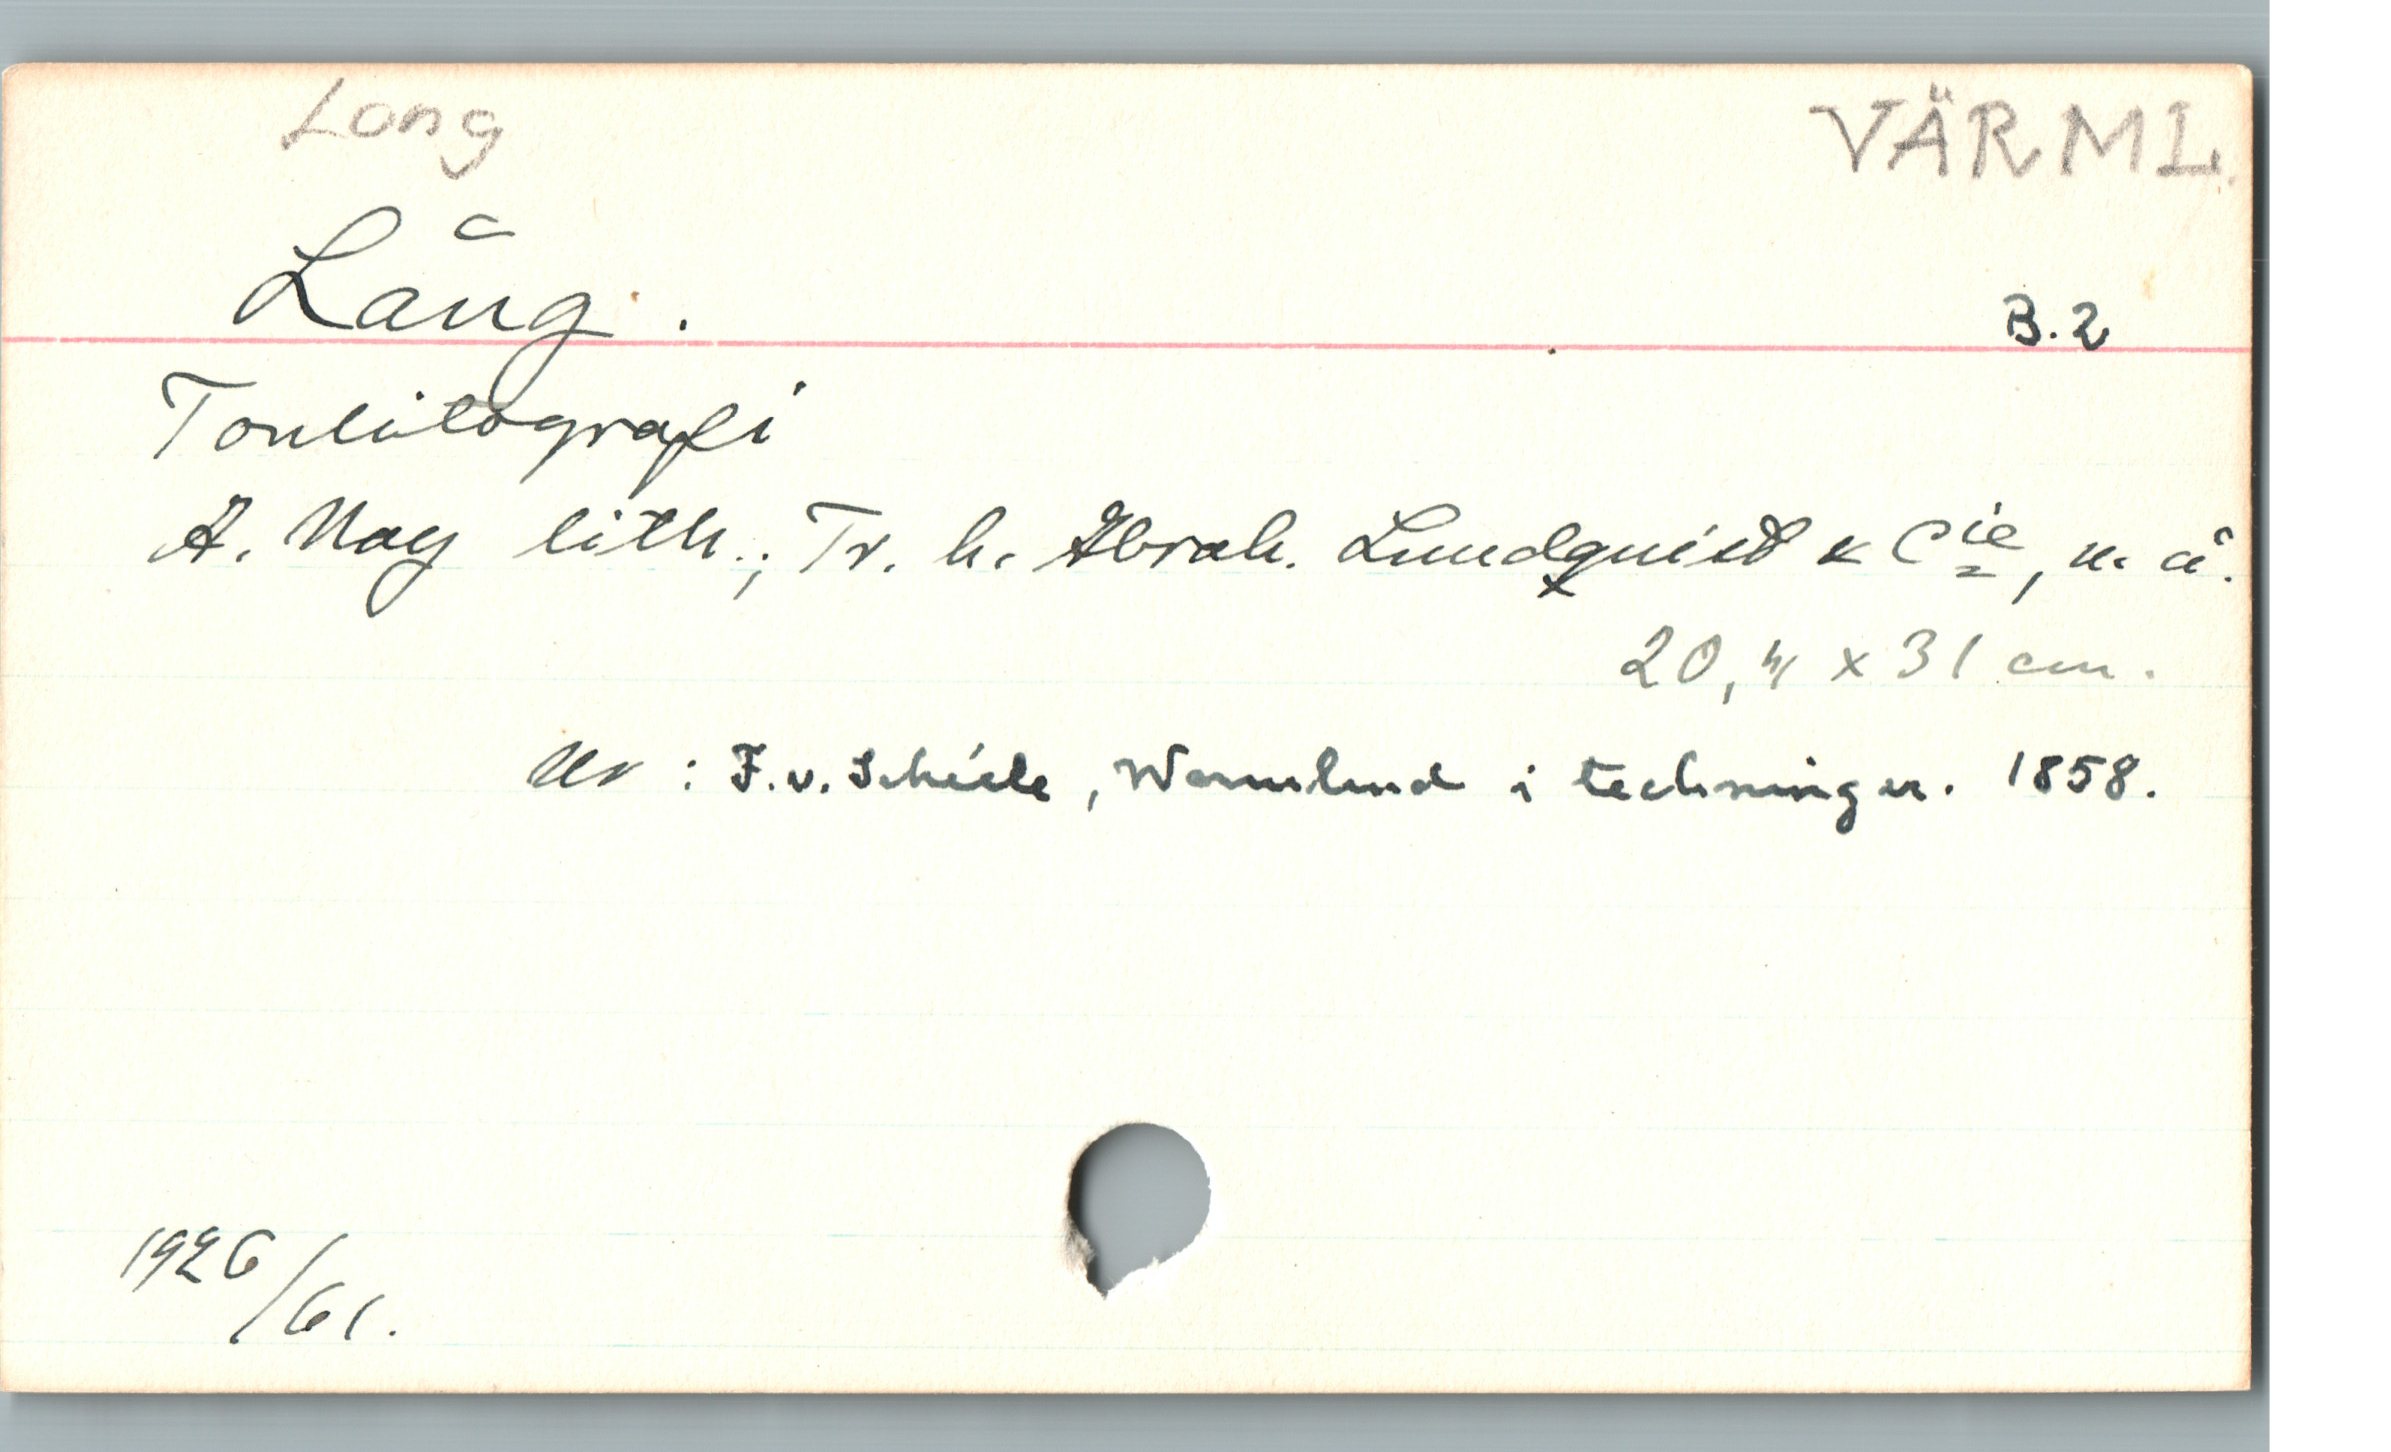 Long
VÄRML.
Lång.
B.2
Tonlitografi
A. Nay lith.; Tr. h. Abrah. Lundquist & Cie, u. å.
20,4 x 31 cm.
Ur : F. v. Schéele, Wermland i techninger. 1858.
1926/61.